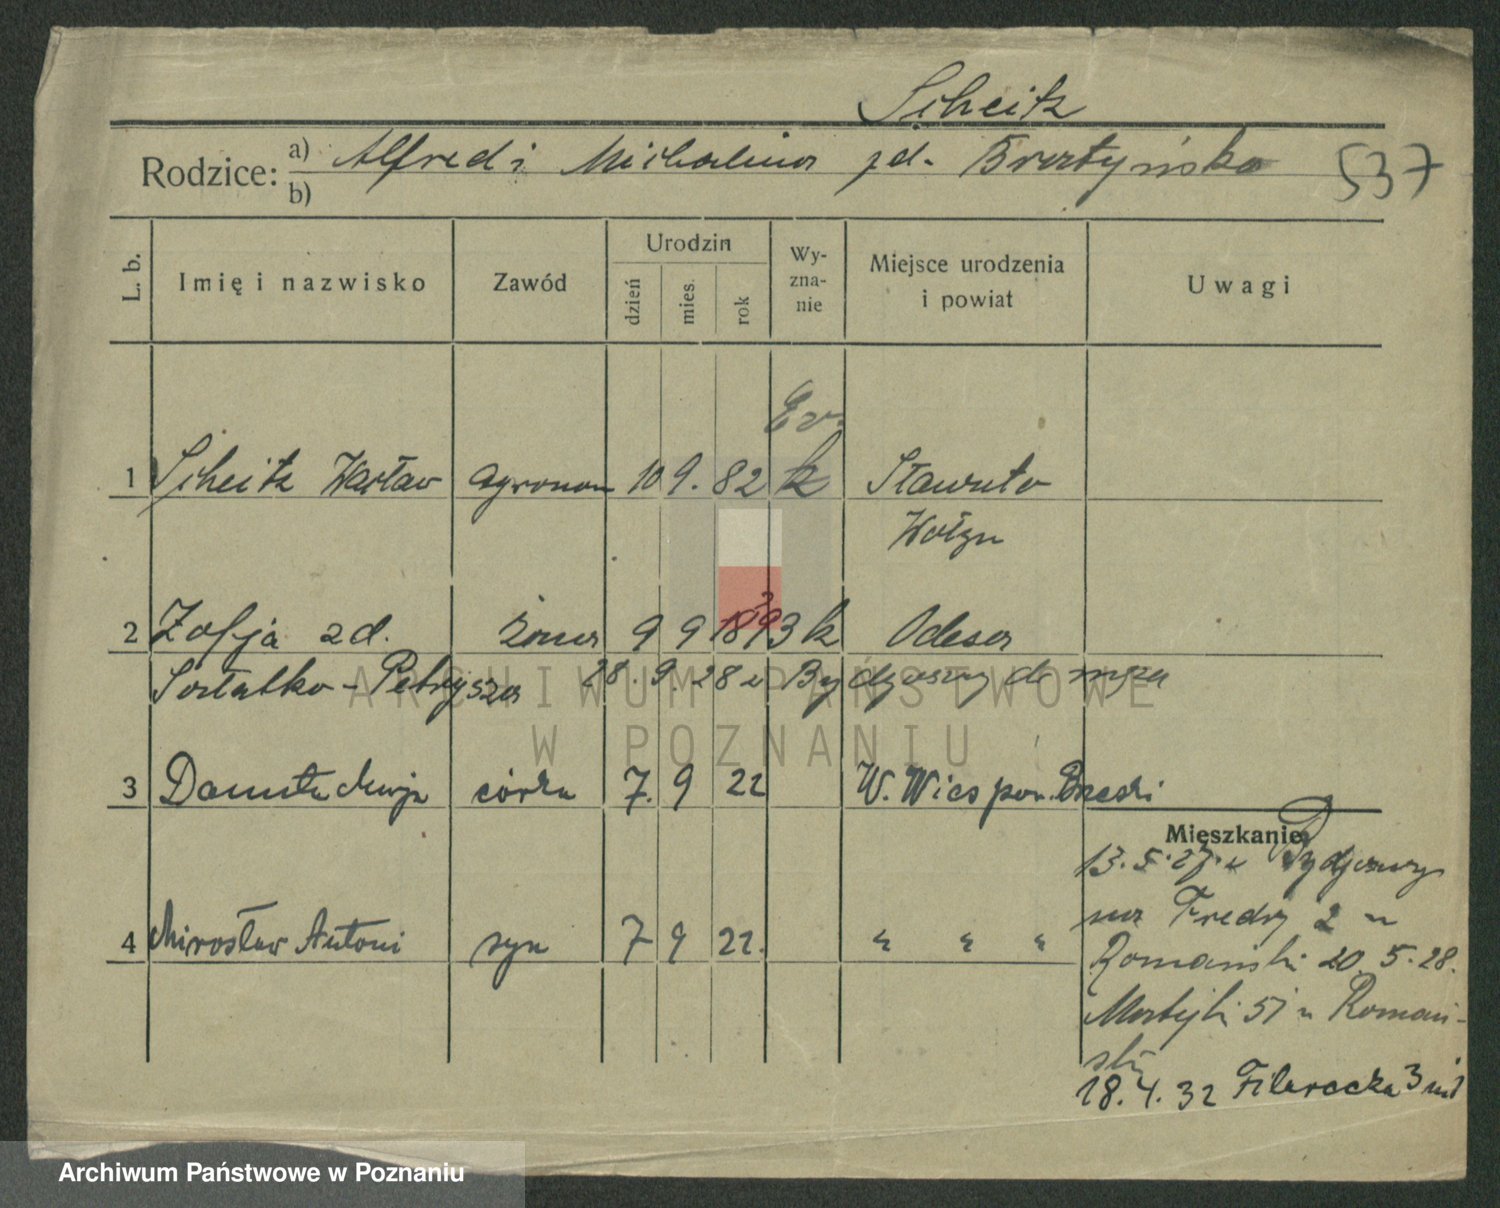 Scheitz
Rodzice: a) Alfred i Michalina zd. 537
b)
L. b. Imię i nazwisko Zawód Urodzin dzień mies. rok Wyznanie Miejsce urodzenia i powiat Uwagi
Ev.
1 Scheitz Wacław agronom 10 9. 82 k Sławuta
Wołyń
2 Zofja zd. żona 9 9 1893 k Odessa
28. 9. 28 z Bydgoszczy do męża
3 Danuta córka 7. 9 22 W. Wieś pow.
Mieszkanie
13. 5. 27. u Bydgoszczy
na Fredry 2 u
4 Mirosław Antoni syn 7 9 22. " " "
Romański 20. 5. 28.
Matejki 51 u Romań-
ski
18. 4. 32 Filarecka 3 m 1
ARCHIWUM PAŃSTWOWE
W POZNANIU
Archiwum Państwowe w Poznaniu